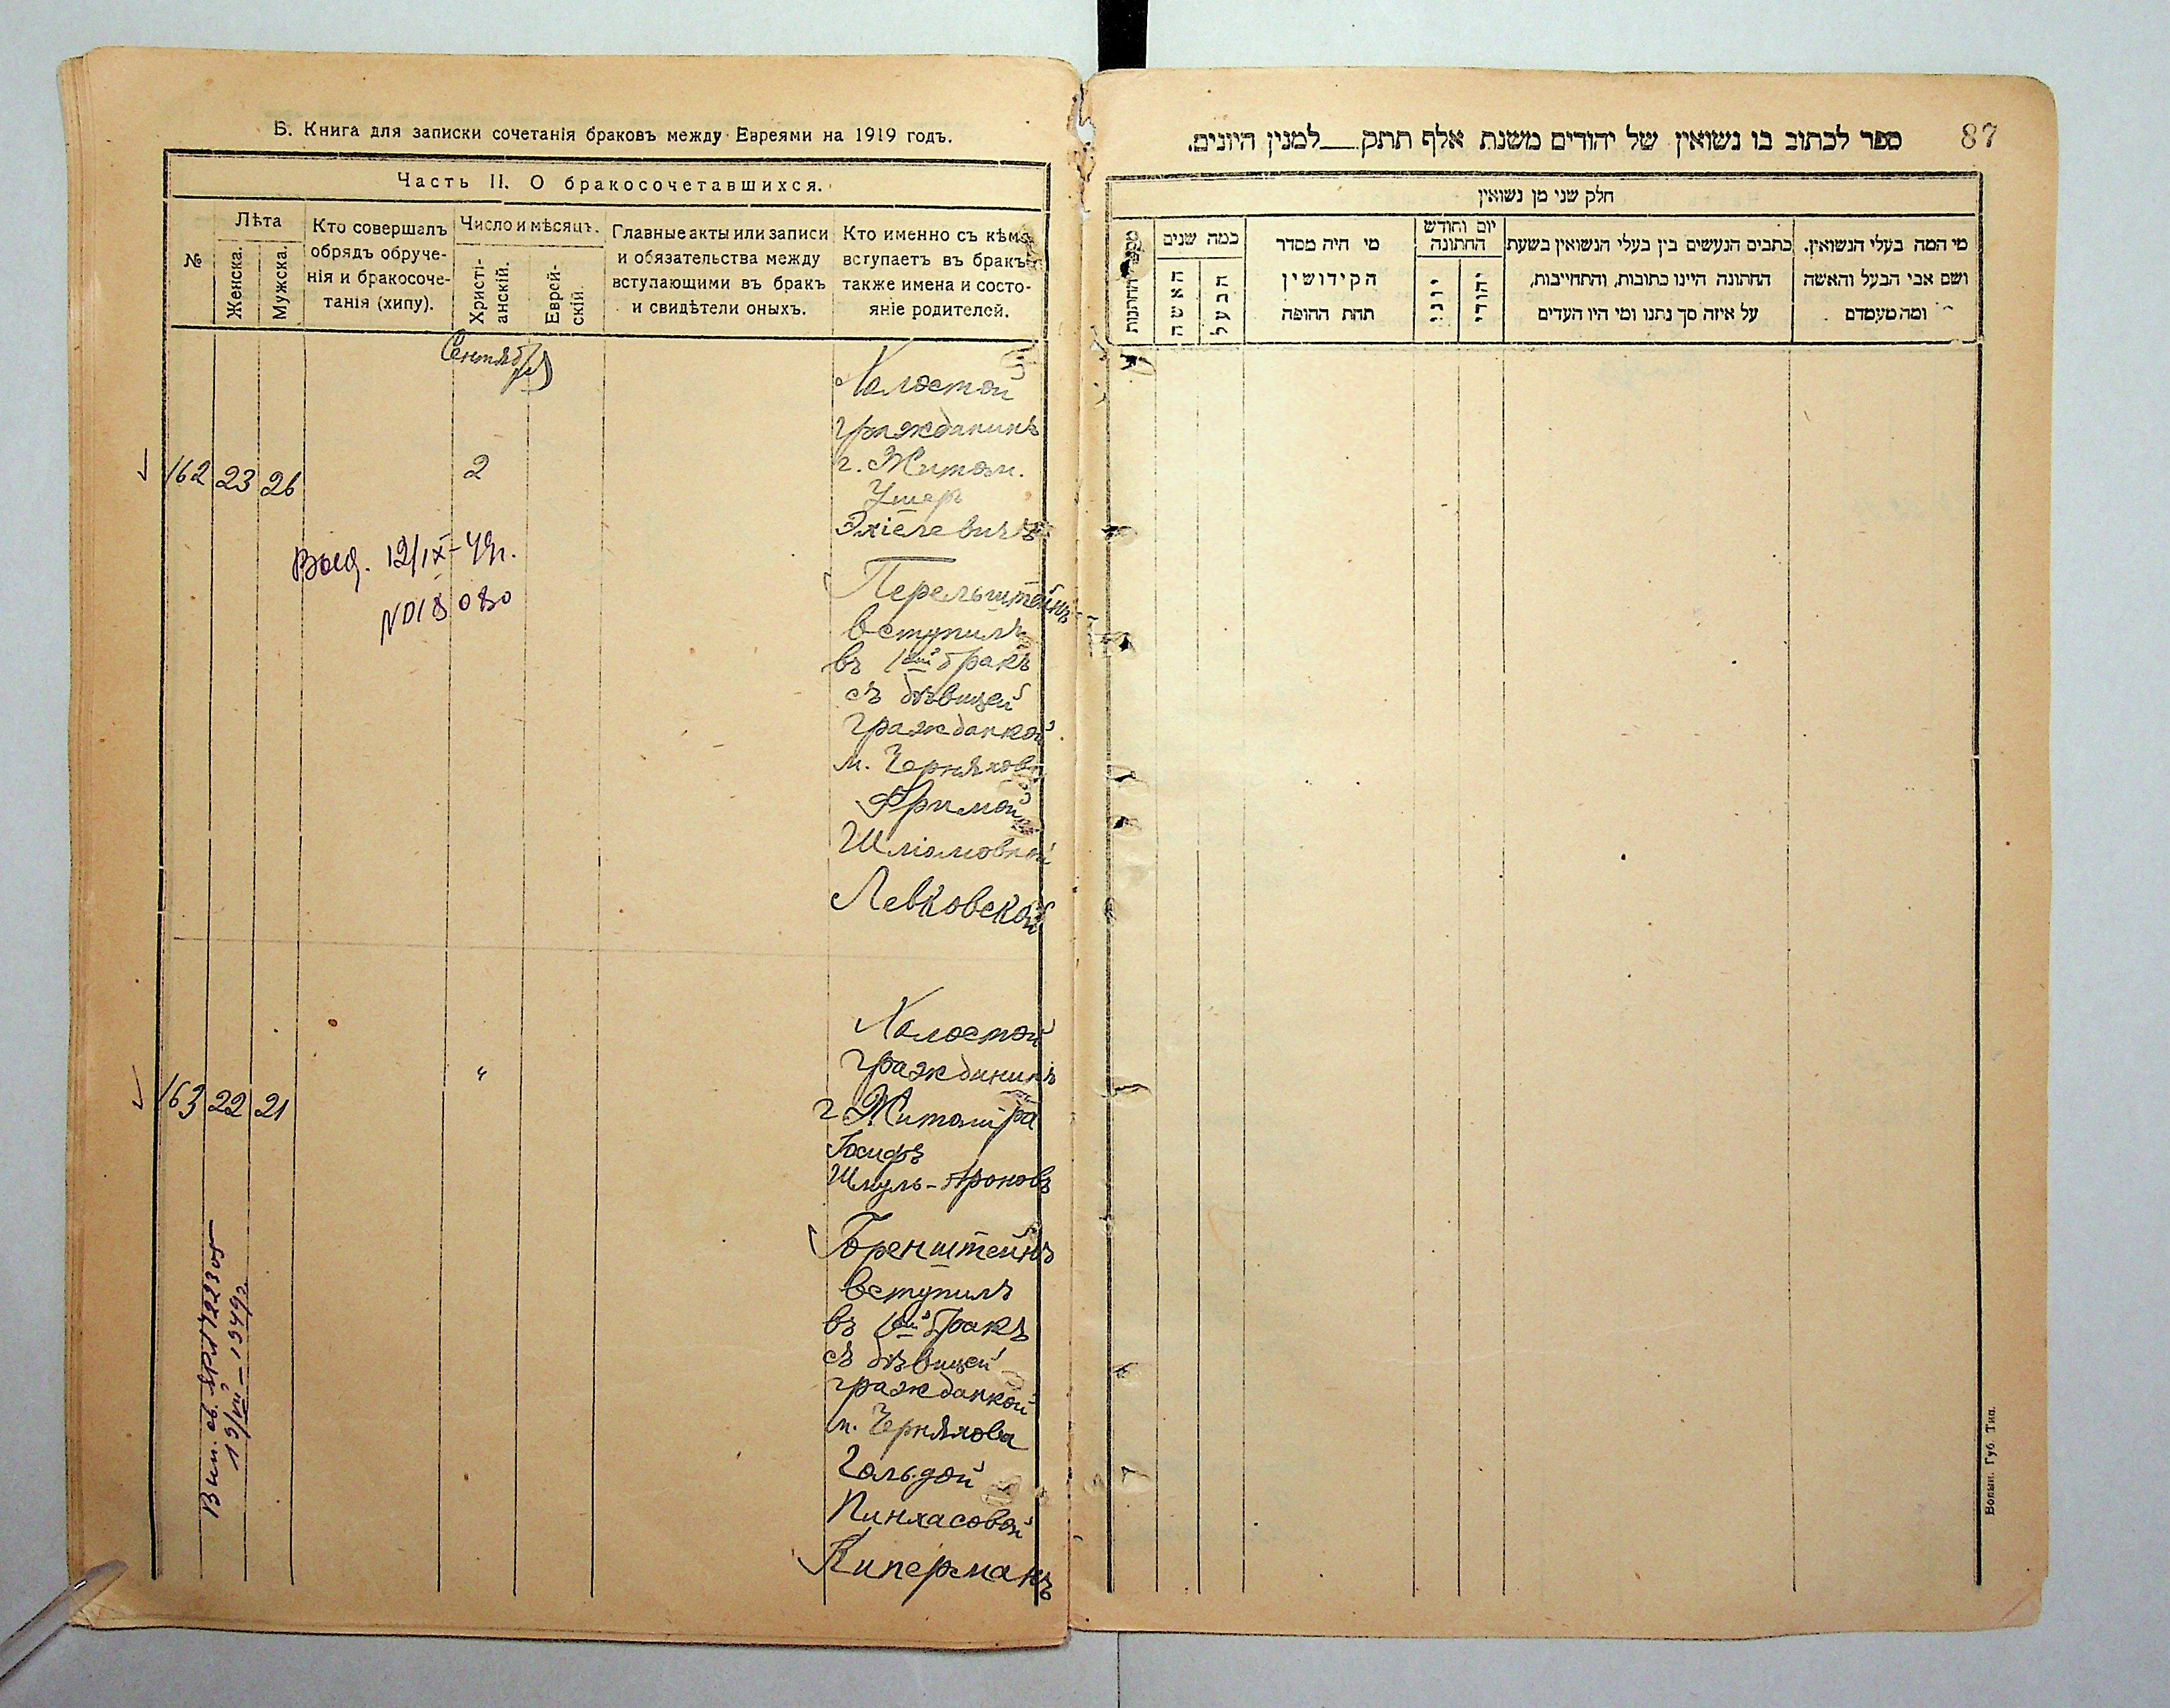 Б. Книга для записки сочетанія браковъ между Евреями на 1919 годъ.
Часть II. О бракосочетавшихся.
№
Лѣта
Женска.
Мужска.
Кто совершалъ
обрядъ обруче-
нія и бракосоче-
танія (хипу).
Число и мѣсяцъ.
Христі-
анскій.
Еврей-
скій.
Главные акты или записи
и обязательства между
вступающими въ бракъ
и свидѣтели оныхъ.
Кто именно съ кѣмъ
вступаетъ въ бракъ
также имена и состо-
яніе родителей.
Сентября
162 23 26
2
Холостой
гражданинъ
г. Житом.
Ушер
Эхіелевичъ
Перельштейнъ
вступилъ
въ 1ый бракъ
съ дѣвицей
гражданкой
м. Черняхова
Фримой
Шліомовной
Левковской
Выд. 12/IX-49г.
163 22 21
"
Холостой
гражданинъ
г. Житоміра
Іосифъ
Шмуль-Ароновъ
Боренштейнъ
вступилъ
въ 1ый бракъ
съ дѣвицей
гражданкой
м. Черняхова
Гольдой
Пинхасовой
Киперманъ
13/VII-1949г.
87
ספר לכתוב בו נשואין של יהודים משנת אלף תתק___למנין היונים.
חלק שני מן נשואין
מי המה בעלי הנשואין.
ושם אבי הבעל והאשה
ומה מעמדם
כתבים הנעשים בין בעלי הנשואין בשעת
החתונה היינו כתובות, והתחייבות,
על איזה סך נתנו ומי היו העדים
יום וחודש
החתונה
יהודי
יוני
מי היה מסדר
הקידושין
תחת החופה
כמה שנים
הבעל
האשה
Волын. Губ. Тип.